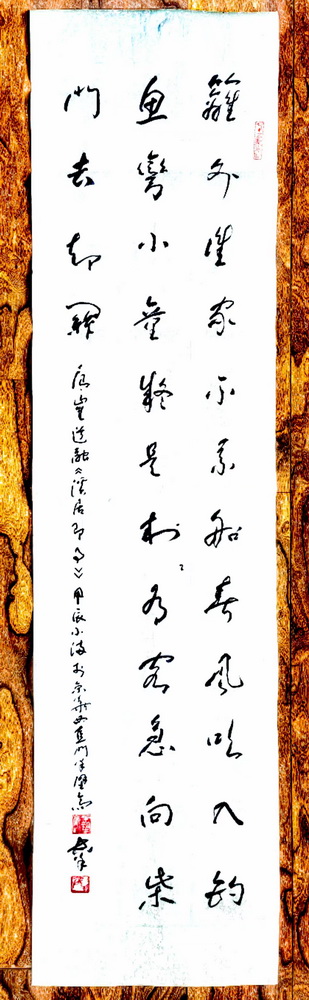 籬外誰家不系船春風吹入釣
魚彎小童疑是村有客急向柴
門去却關
唐崔道融《溪居即事》甲辰小波於京華西直門